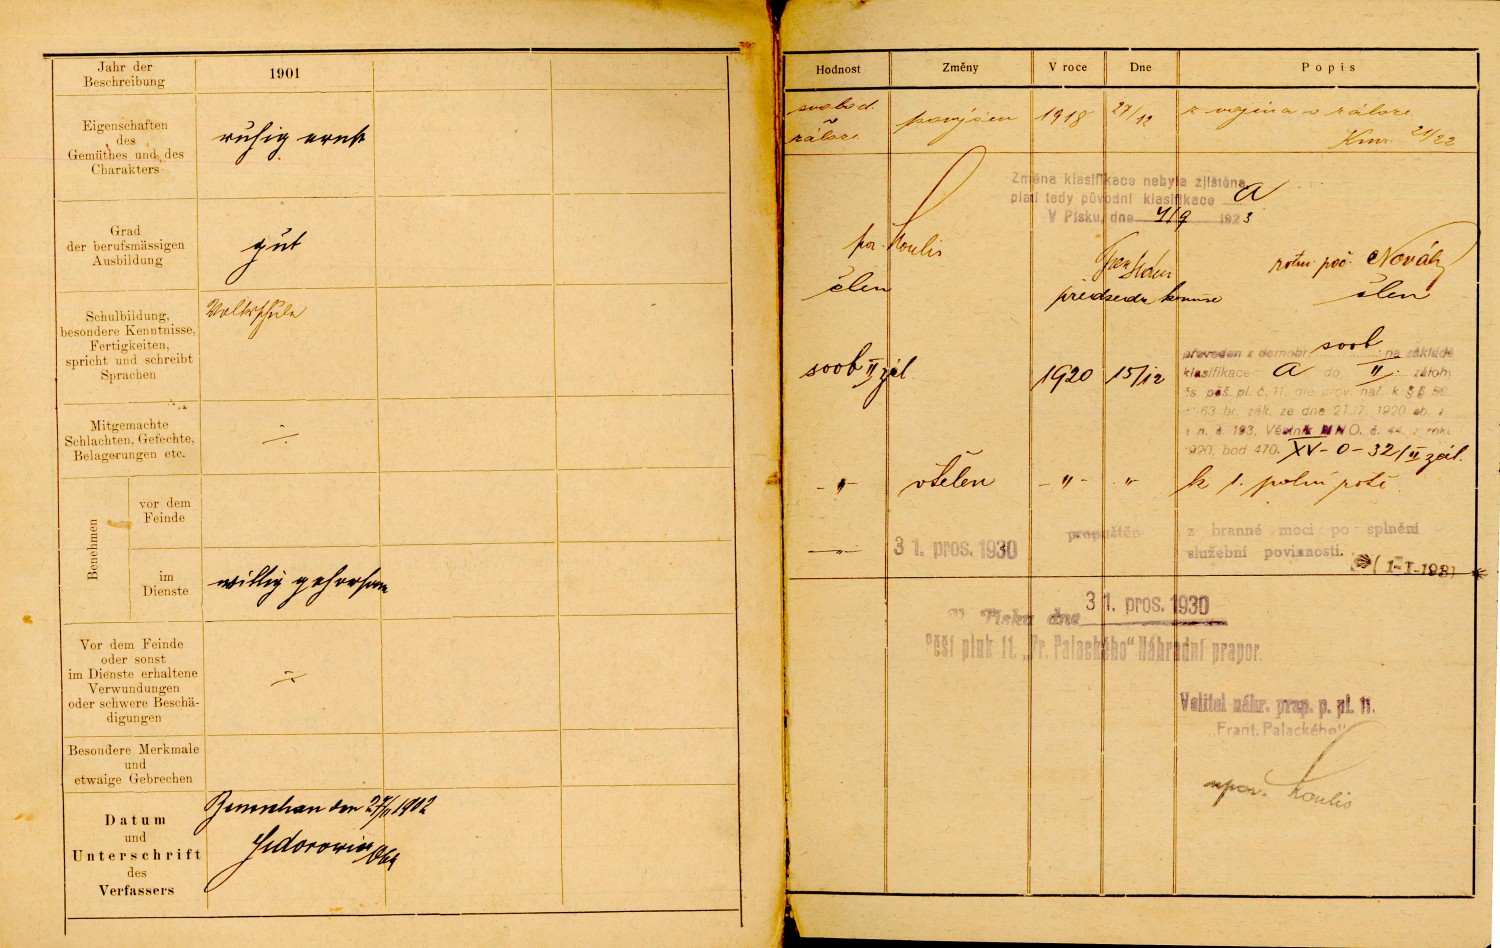 Jahr der
Beschreibung
1901
Eigenschaften
des
Gemüthes und des
Charakters
ruhig ernst
Grad
der berufsmässigen
Ausbildung
gut
Schulbildung,
besondere Kenntnisse,
Fertigkeiten,
spricht und schreibt
Sprachen
Volksschule
Mitgemachte
Schlachten, Gefechte,
Belagerungen etc.
÷
Benehmen
vor dem
Feinde
im
Dienste
willig gehorsam
Vor dem Feinde
oder sonst
im Dienste erhaltene
Verwundungen
oder schwere Beschä-
digungen
÷
Besondere Merkmale
und
etwaige Gebrechen
Datum
und
Unterschrift
des
Verfassers
den 27/11 1902
Hodnost
Změny
V roce
Dne
Popis
svobod.
v
záloze
povýšen
1918
27/12
z vojína v záloze
21/22
Změna klasifikace nebyla zjištěna
platí tedy původní klasifikace a
V Písku, dne 7/9 1923
por. Koulis
člen
předseda komise
rotm. Novák
člen
svob II zál
1920
15/12
převeden z domobr. svob na základě
klasifikace a do II. zálohy
čs. pěš. pl. č. 11. dle prov. nař. k §§
63 br. zák. ze dne 21./7. 1920 sb. z.
a n. č. 193. Věstník MNO. č. 44. z roku
1920, bod 470. XV-0-32/II zál.
-„-
včlen
-„-
„
k 1. polní rotě
-„-
31. pros. 1930
propuštěn
z branné moci po splnění
služební povinnosti.
(1-I-1931)
V Písku dne 31. pros. 1930
Pěší pluk 11. „Fr. Palackého“ Náhradní prapor.
Velitel náhr. prap. p. pl. 11.
„Frant. Palackého“
Koulis